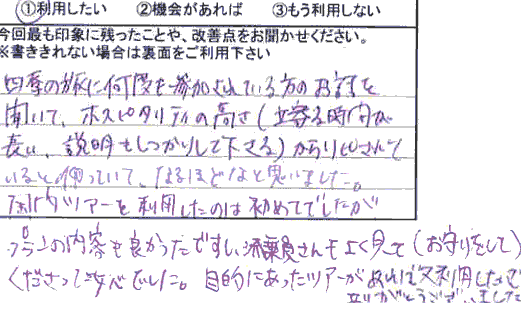 ①利用したい ②機会があれば ③もう利用しない
今回最も印象に残ったことや、改善点をお聞かせください。
※書ききれない場合は裏面をご利用下さい
四季の旅に何度も参加されている方のお話を
聞いて、ホスピタリティの高さ(立寄る時間が
長い、説明もしっかりして下さる)からリピされて
いると伺っていて、なるほどなと思いました。
ツアーを利用したのは初めてでしたが
プランの内容も良かったですし、添乗員さんもよく見て(お守りをして)
くださって 安心でした。目的にあったツアーがあれば又利用したいです
ありがとうございました